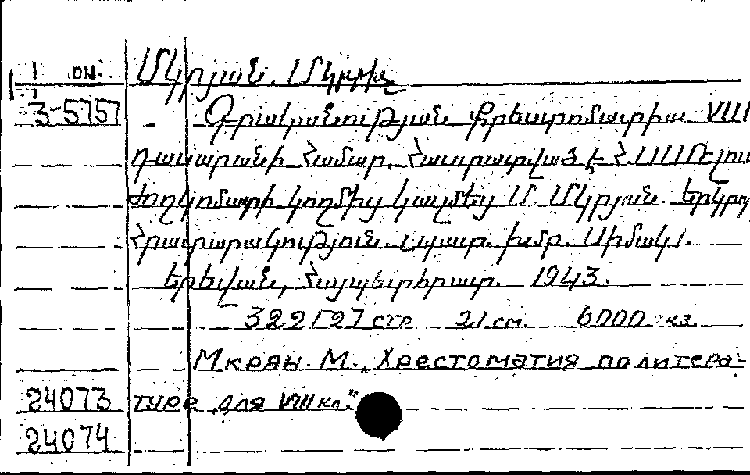 1 он. Մկրյան, Մկրտիչ
3-5757 Գրականության քրեստոմատիա VIII
դասարանի համար. Հաստատված է ՀՍՍՌ Լուս
ժողկոմատի կողմից կազմեց Մ. Մկրյան. Երկրորդ
հրատարակություն. պատ. խմբ. Սիմակ.
Երեվան, Հայպետհրատ. 1943.
322 [2] стр 21 см. 6000 экз.
Мкрян М., Хрестоматия по литера-
24073 туре для VIII кл."
24074